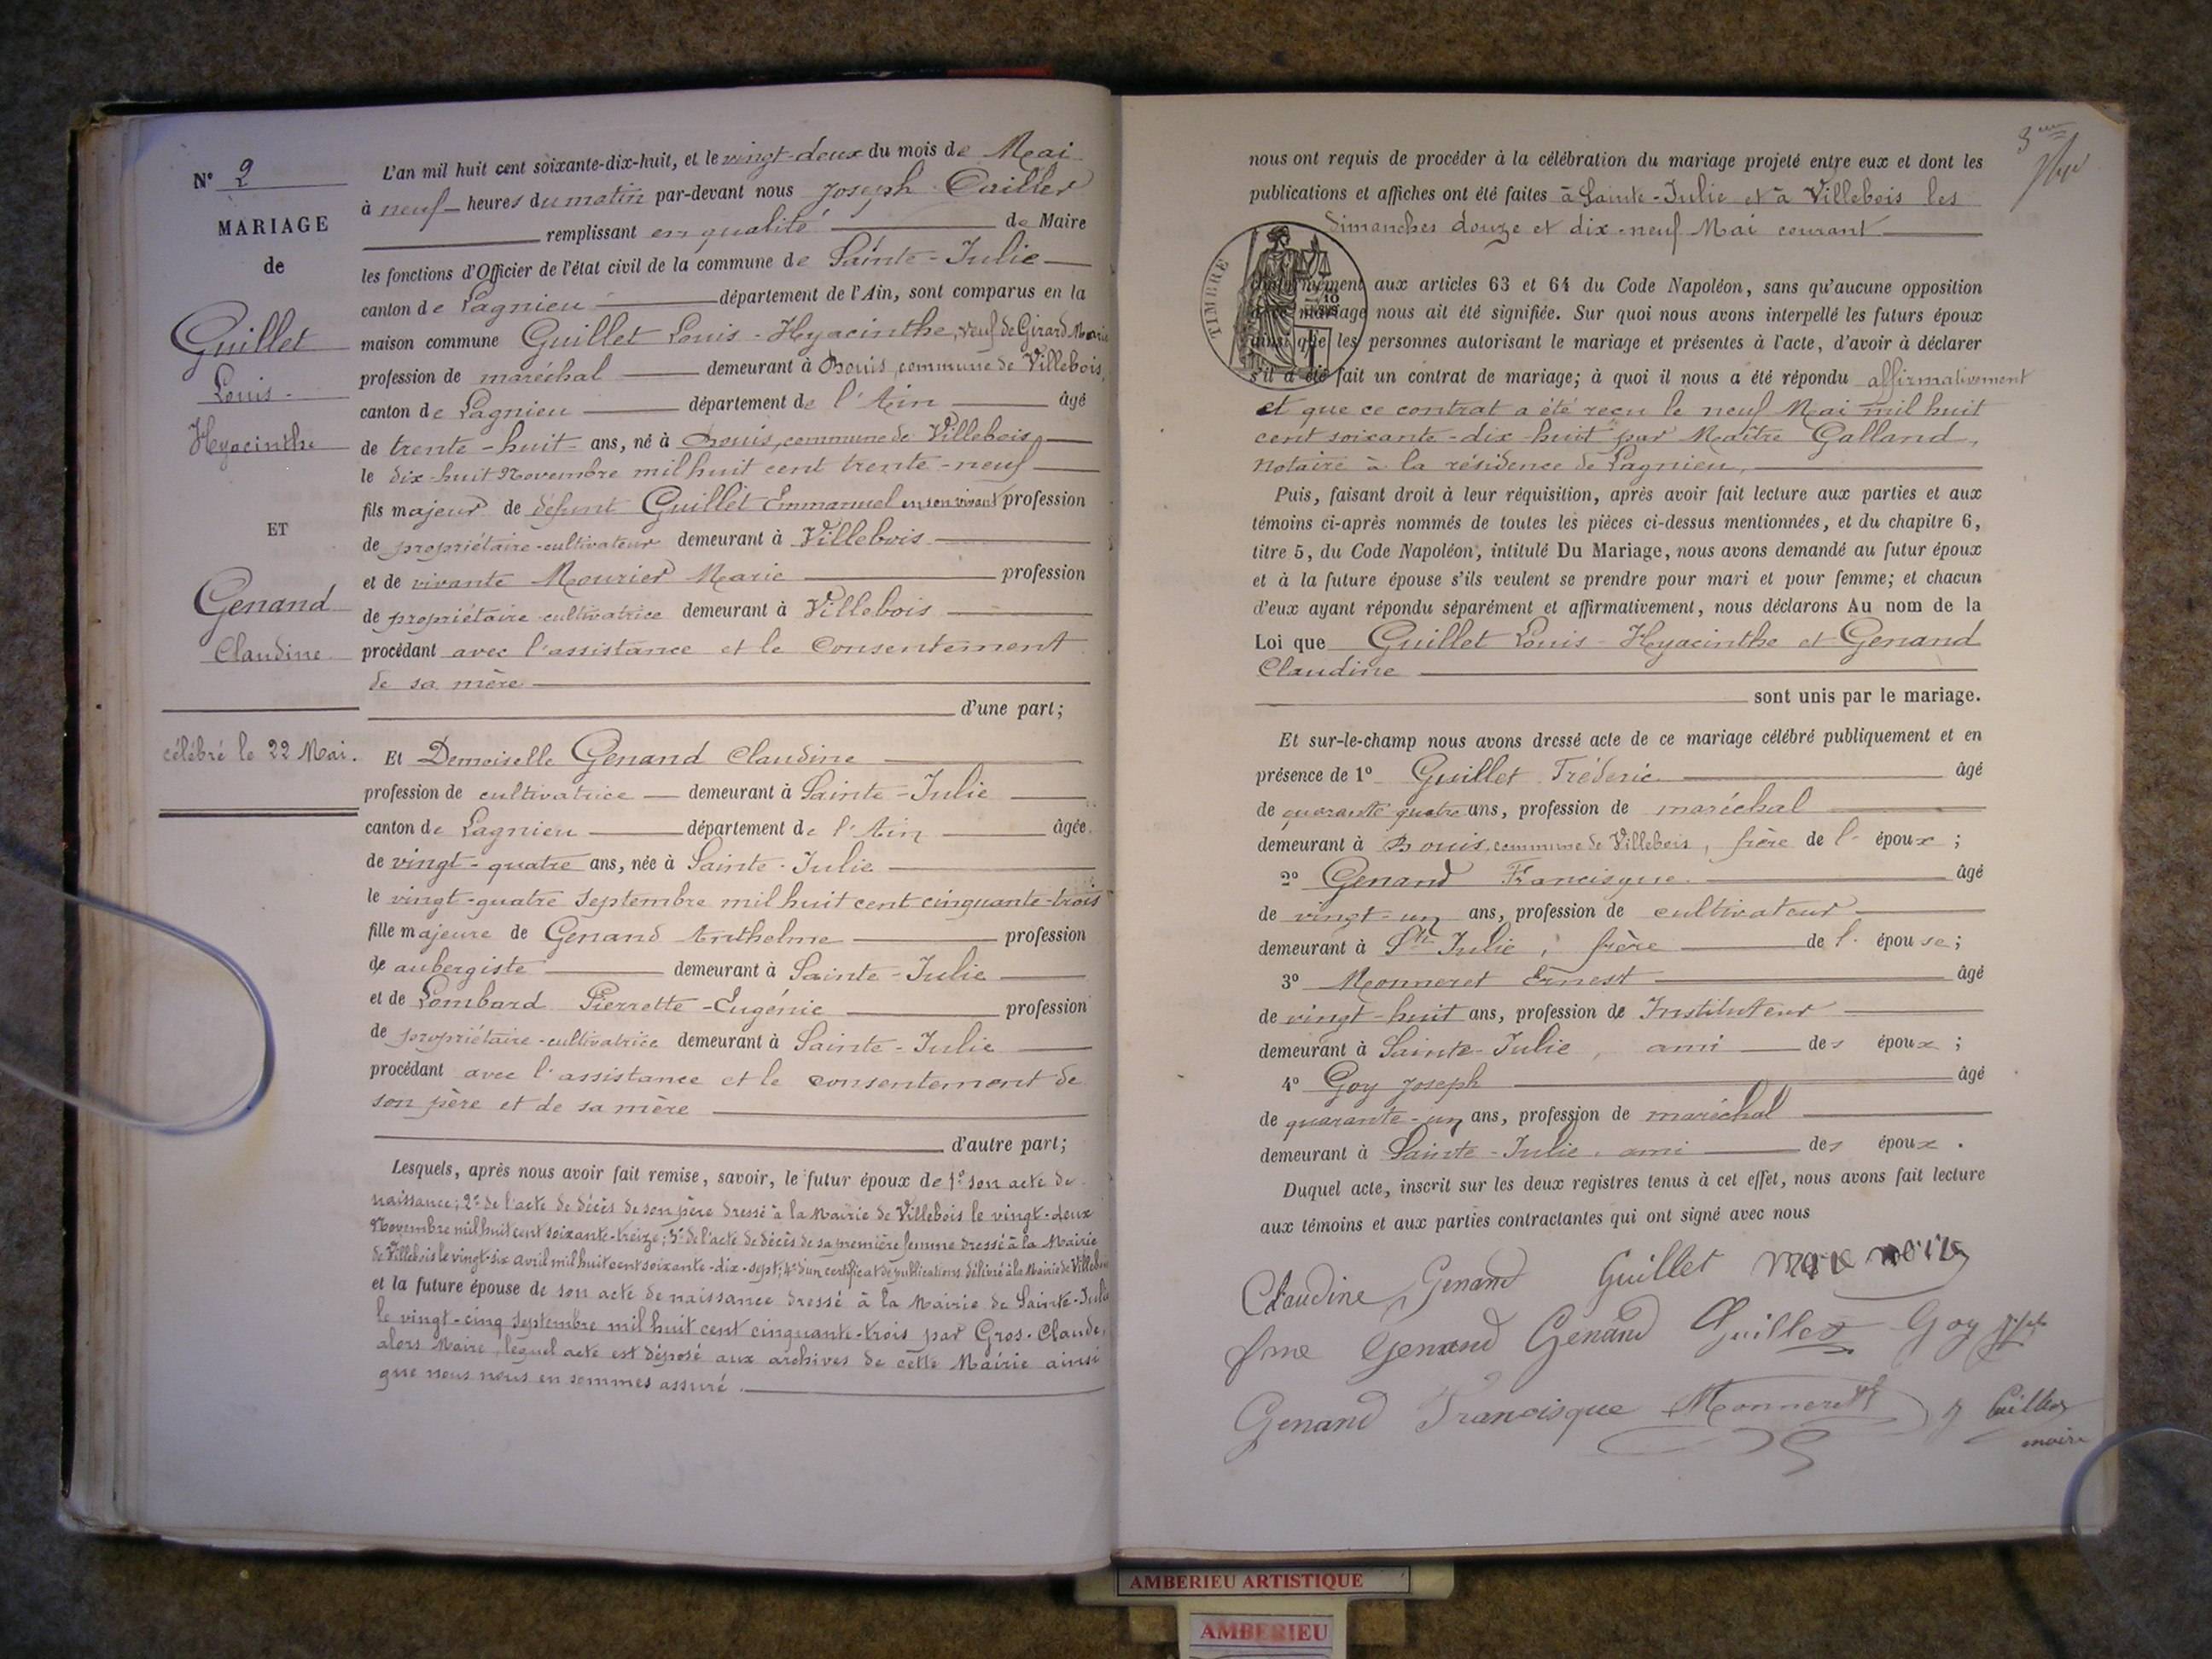 N° 2
MARIAGE
de
Guillet
Louis-
Hyacinthe
ET
Genand
Claudine
célébré le 22 Mai.
L'an mil huit cent soixante-dix-huit, et le vingt-deux du mois de Mai
à neuf heures du matin par-devant nous Joseph Cailler
remplissant en qualité de Maire
les fonctions d'Officier de l'état civil de la commune de Sainte-Julie
canton de Lagnieu département de l'Ain, sont comparus en la
maison commune Guillet Louis-Hyacinthe, veuf de Girard Marie
profession de maréchal demeurant à Bouis, commune de Villebois,
canton de Lagnieu département de l'Ain âgé
de trente-huit ans, né à Bouis, commune de Villebois,
le dix-huit Novembre mil huit cent trente-neuf
fils majeur de défunt Guillet Emmanuel en son vivant profession
de propriétaire-cultivateur demeurant à Villebois
et de vivante Mourier Marie profession
de propriétaire cultivatrice demeurant à Villebois
procédant avec l'assistance et le consentement
de sa mère
d'une part;
Et Demoiselle Genand Claudine
profession de cultivatrice demeurant à Sainte-Julie
canton de Lagnieu département de l'Ain âgée
de vingt-quatre ans, née à Sainte-Julie
le vingt-quatre septembre mil huit cent cinquante-trois
fille majeure de Genand Anthelme profession
de aubergiste demeurant à Sainte-Julie
et de Lombard Pierrette-Eugénie profession
de propriétaire-cultivatrice demeurant à Sainte-Julie
procédant avec l'assistance et le consentement de
son père et de sa mère
d'autre part;
Lesquels, après nous avoir fait remise, savoir, le futur époux de 1° son acte de
naissance; 2° de l'acte de décès de son père dressé à la Mairie de Villebois le vingt-deux
Novembre mil huit cent soixante-treize; 3° de l'acte de décès de sa première femme dressé à la Mairie
de Villebois le vingt-six avril mil huit cent soixante-dix-sept; 4° d'un certificat de publications délivré à la Mairie de Villebois
et la future épouse de son acte de naissance dressé à la Mairie de Sainte-Julie
le vingt-cinq septembre mil huit cent cinquante-trois par Gros-Claude,
alors Maire, lequel acte est déposé aux archives de cette Mairie ainsi
que nous nous en sommes assuré.
3eme
nous ont requis de procéder à la célébration du mariage projeté entre eux et dont les
publications et affiches ont été faites à Sainte-Julie et à Villebois les
dimanches douze et dix-neuf Mai courant
TIMBRE
conformément aux articles 63 et 64 du Code Napoléon, sans qu'aucune opposition
mariage nous ait été signifiée. Sur quoi nous avons interpellé les futurs époux
ainsi que les personnes autorisant le mariage et présentes à l'acte, d'avoir à déclarer
s'il a été fait un contrat de mariage; à quoi il nous a été répondu affirmativement
et que ce contrat a été reçu le neuf Mai mil huit
cent soixante-dix-huit par Maître Galland,
notaire à la résidence de Lagnieu,
Puis, faisant droit à leur réquisition, après avoir fait lecture aux parties et aux
témoins ci-après nommés de toutes les pièces ci-dessus mentionnées, et du chapitre 6,
titre 5, du Code Napoléon, intitulé Du Mariage, nous avons demandé au futur époux
et à la future épouse s'ils veulent se prendre pour mari et pour femme; et chacun
d'eux ayant répondu séparément et affirmativement, nous déclarons Au nom de la
Loi que Guillet Louis-Hyacinthe et Genand
Claudine
sont unis par le mariage.
Et sur-le-champ nous avons dressé acte de ce mariage célébré publiquement et en
présence de 1° Guillet Fréderic âgé
de quarante quatre ans, profession de maréchal
demeurant à Bouis, commune de Villebois, frère de l' époux;
2° Genand Francisque âgé
de vingt-un ans, profession de cultivateur
demeurant à Ste Julie, frère de l' épouse;
3° Monneret Ernest âgé
de vingt-huit ans, profession de Instituteur
demeurant à Sainte-Julie, ami des époux;
4° Goy Joseph âgé
de quarante-un ans, profession de maréchal
demeurant à Sainte-Julie, ami des époux.
Duquel acte, inscrit sur les deux registres tenus à cet effet, nous avons fait lecture
aux témoins et aux parties contractantes qui ont signé avec nous
Claudine Genand Guillet
fme Genand Genand Guillet Goy
Genand Francisque Monneret J Cailler
maire
AMBERIEU ARTISTIQUE
AMBERIEU